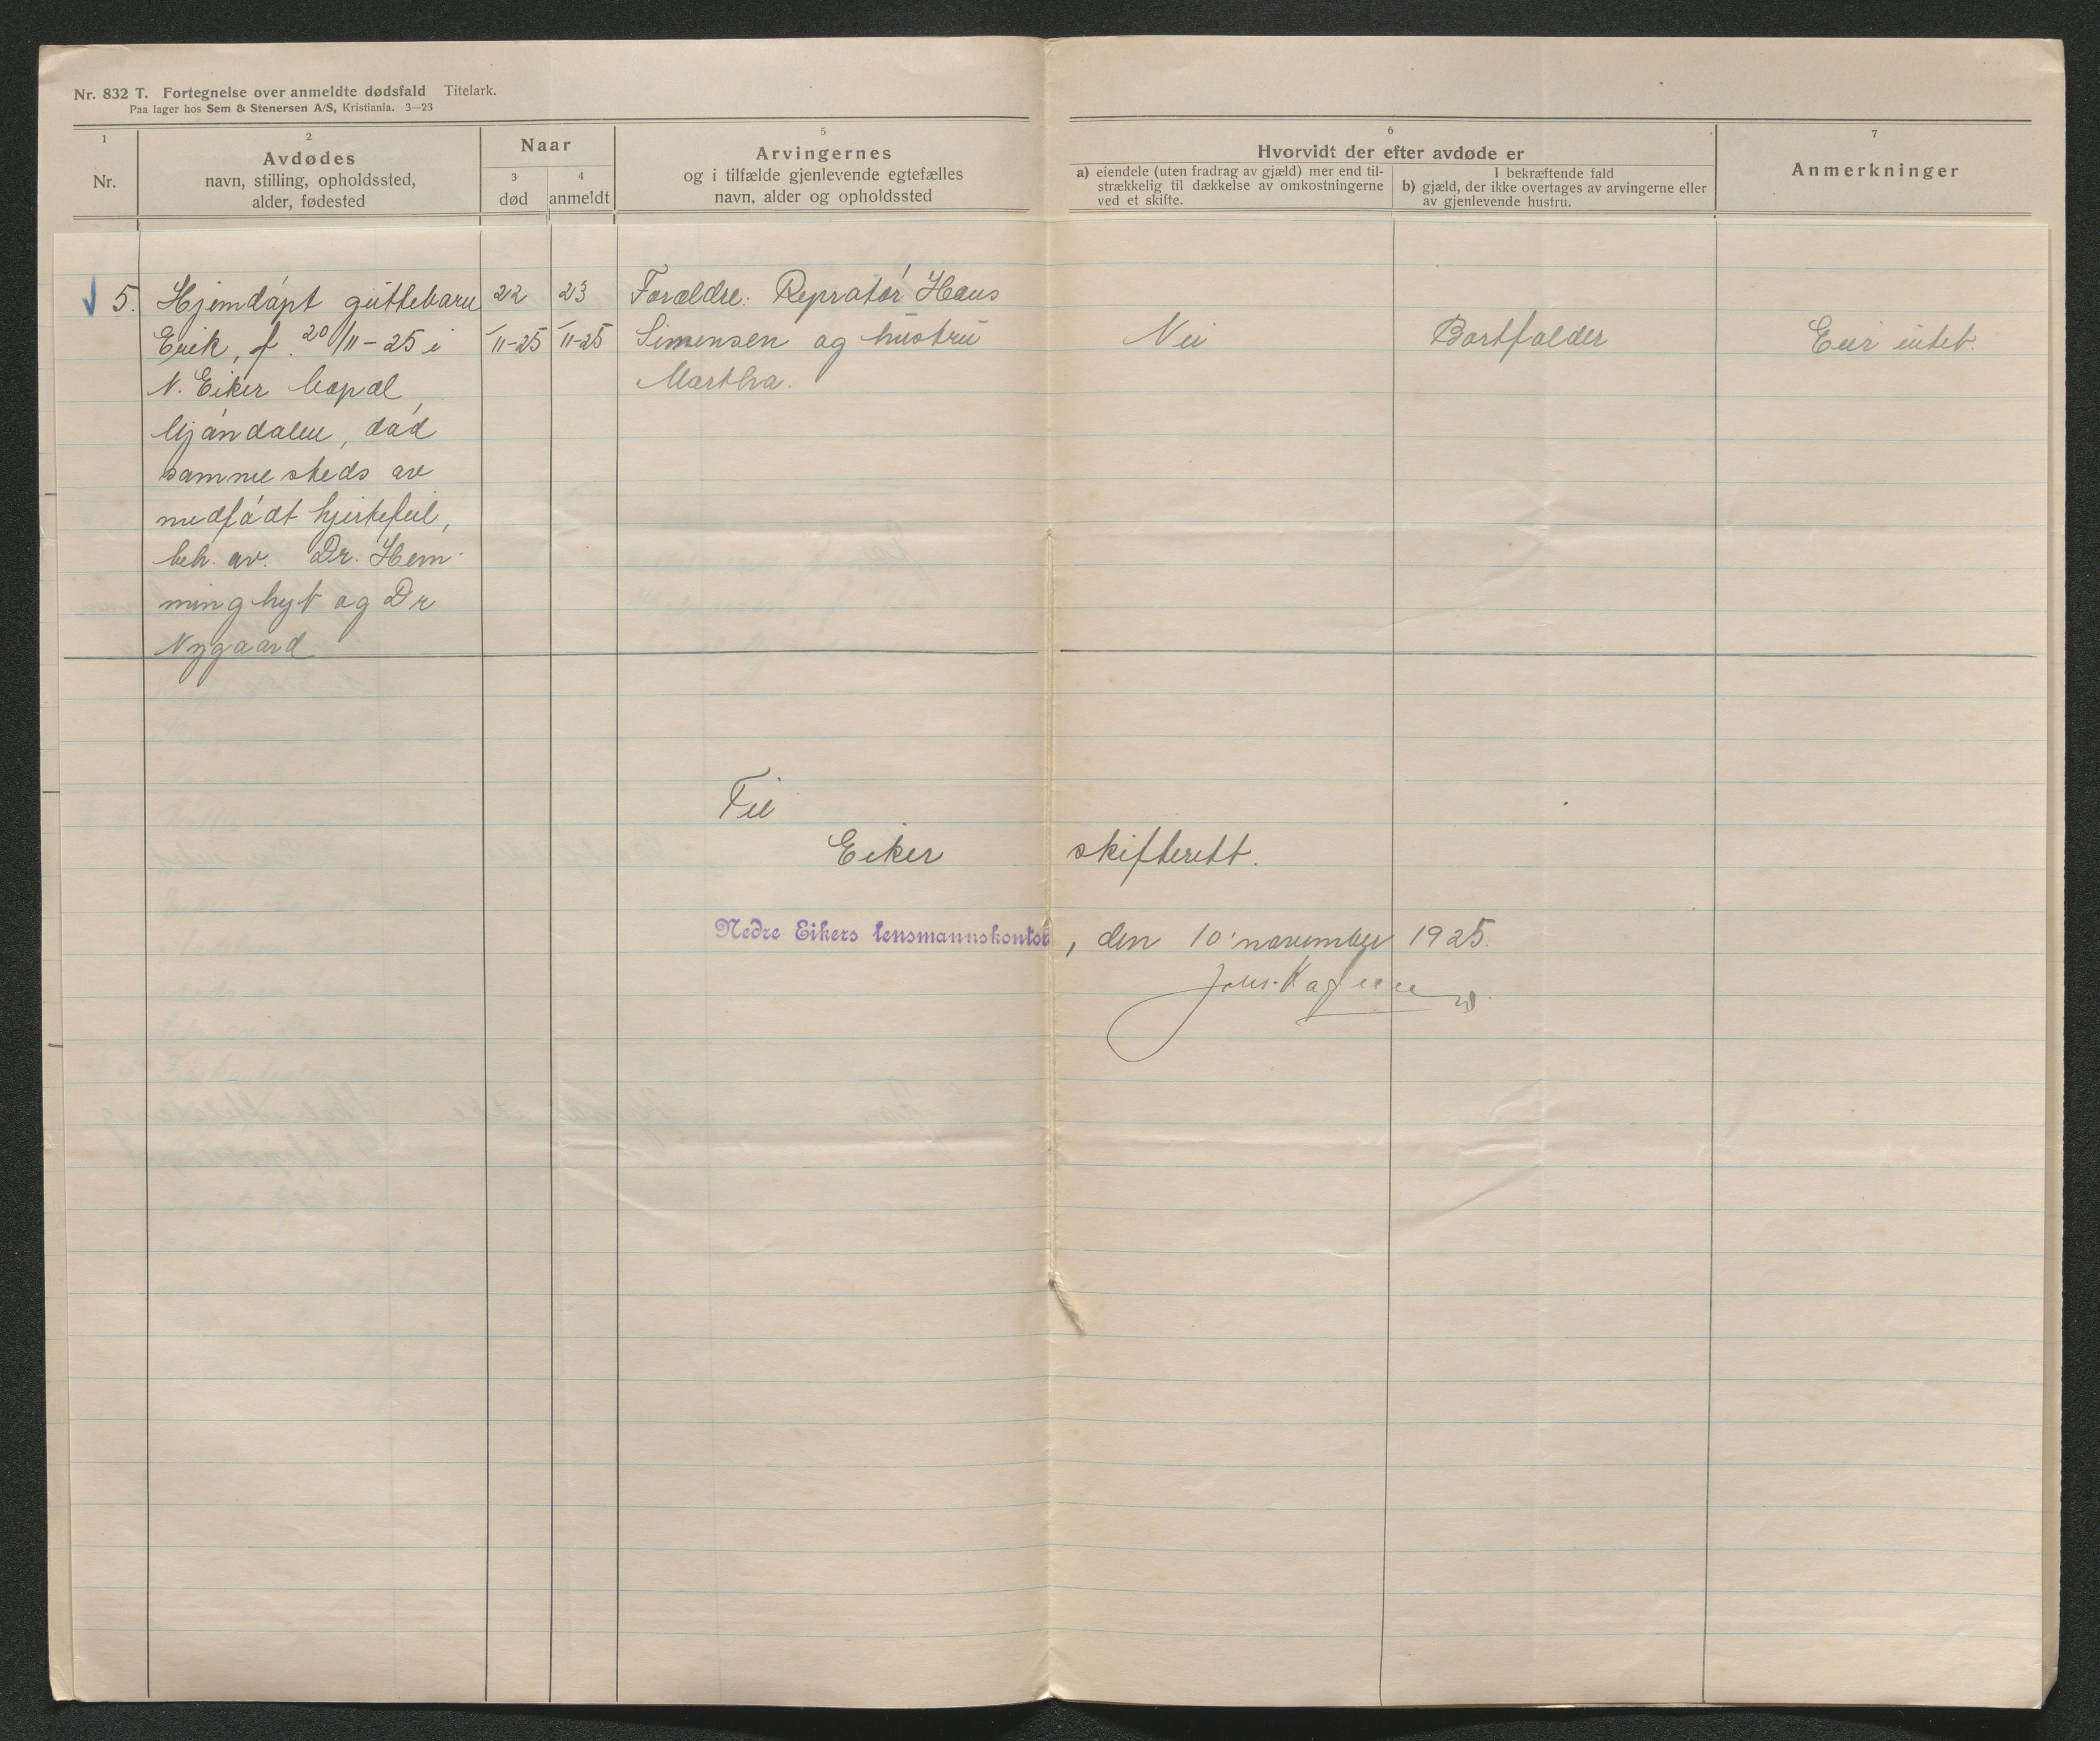 Nr. 832 T. Fortegnelse over anmeldte dødsfald Titelark.
Paa lager hos Sem & Stenersen A/S, Kristiania. 3—23
1
Nr.
2
Avdødes
navn, stilling, opholdssted,
alder, fødested
Naar
3
død
4
anmeldt
5
Arvingernes
og i tilfælde gjenlevende egtefælles
navn, alder og opholdssted
6
Hvorvidt der efter avdøde er
a) eiendele (uten fradrag av gjæld) mer end til-
strækkelig til dækkelse av omkostningerne
ved et skifte.
I bekræftende fald
b) gjæld, der ikke overtages av arvingerne eller
av gjenlevende hustru.
7
Anmerkninger
5.
Hjemdøpt guttebarn
Erik, f. 20/11-25 i
N. Eiker kapel,
Mjøndalen, død
sammesteds av
medfødt hjertefeil,
beh. av. Dr. Hem-
minghyt og Dr
Nygaard
22
/11-25
23
/11-25
Forældre: Repratør Hans
Simensen og hustru
Martha.
Nei
Bortfalder
Eier intet.
Til
Eiker skifterett.
Nedre Eikers lensmannskontor, den 10. november 1925.